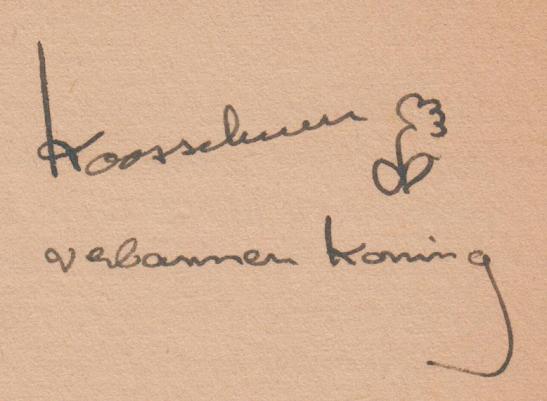 Koosschuur
verbannen koning